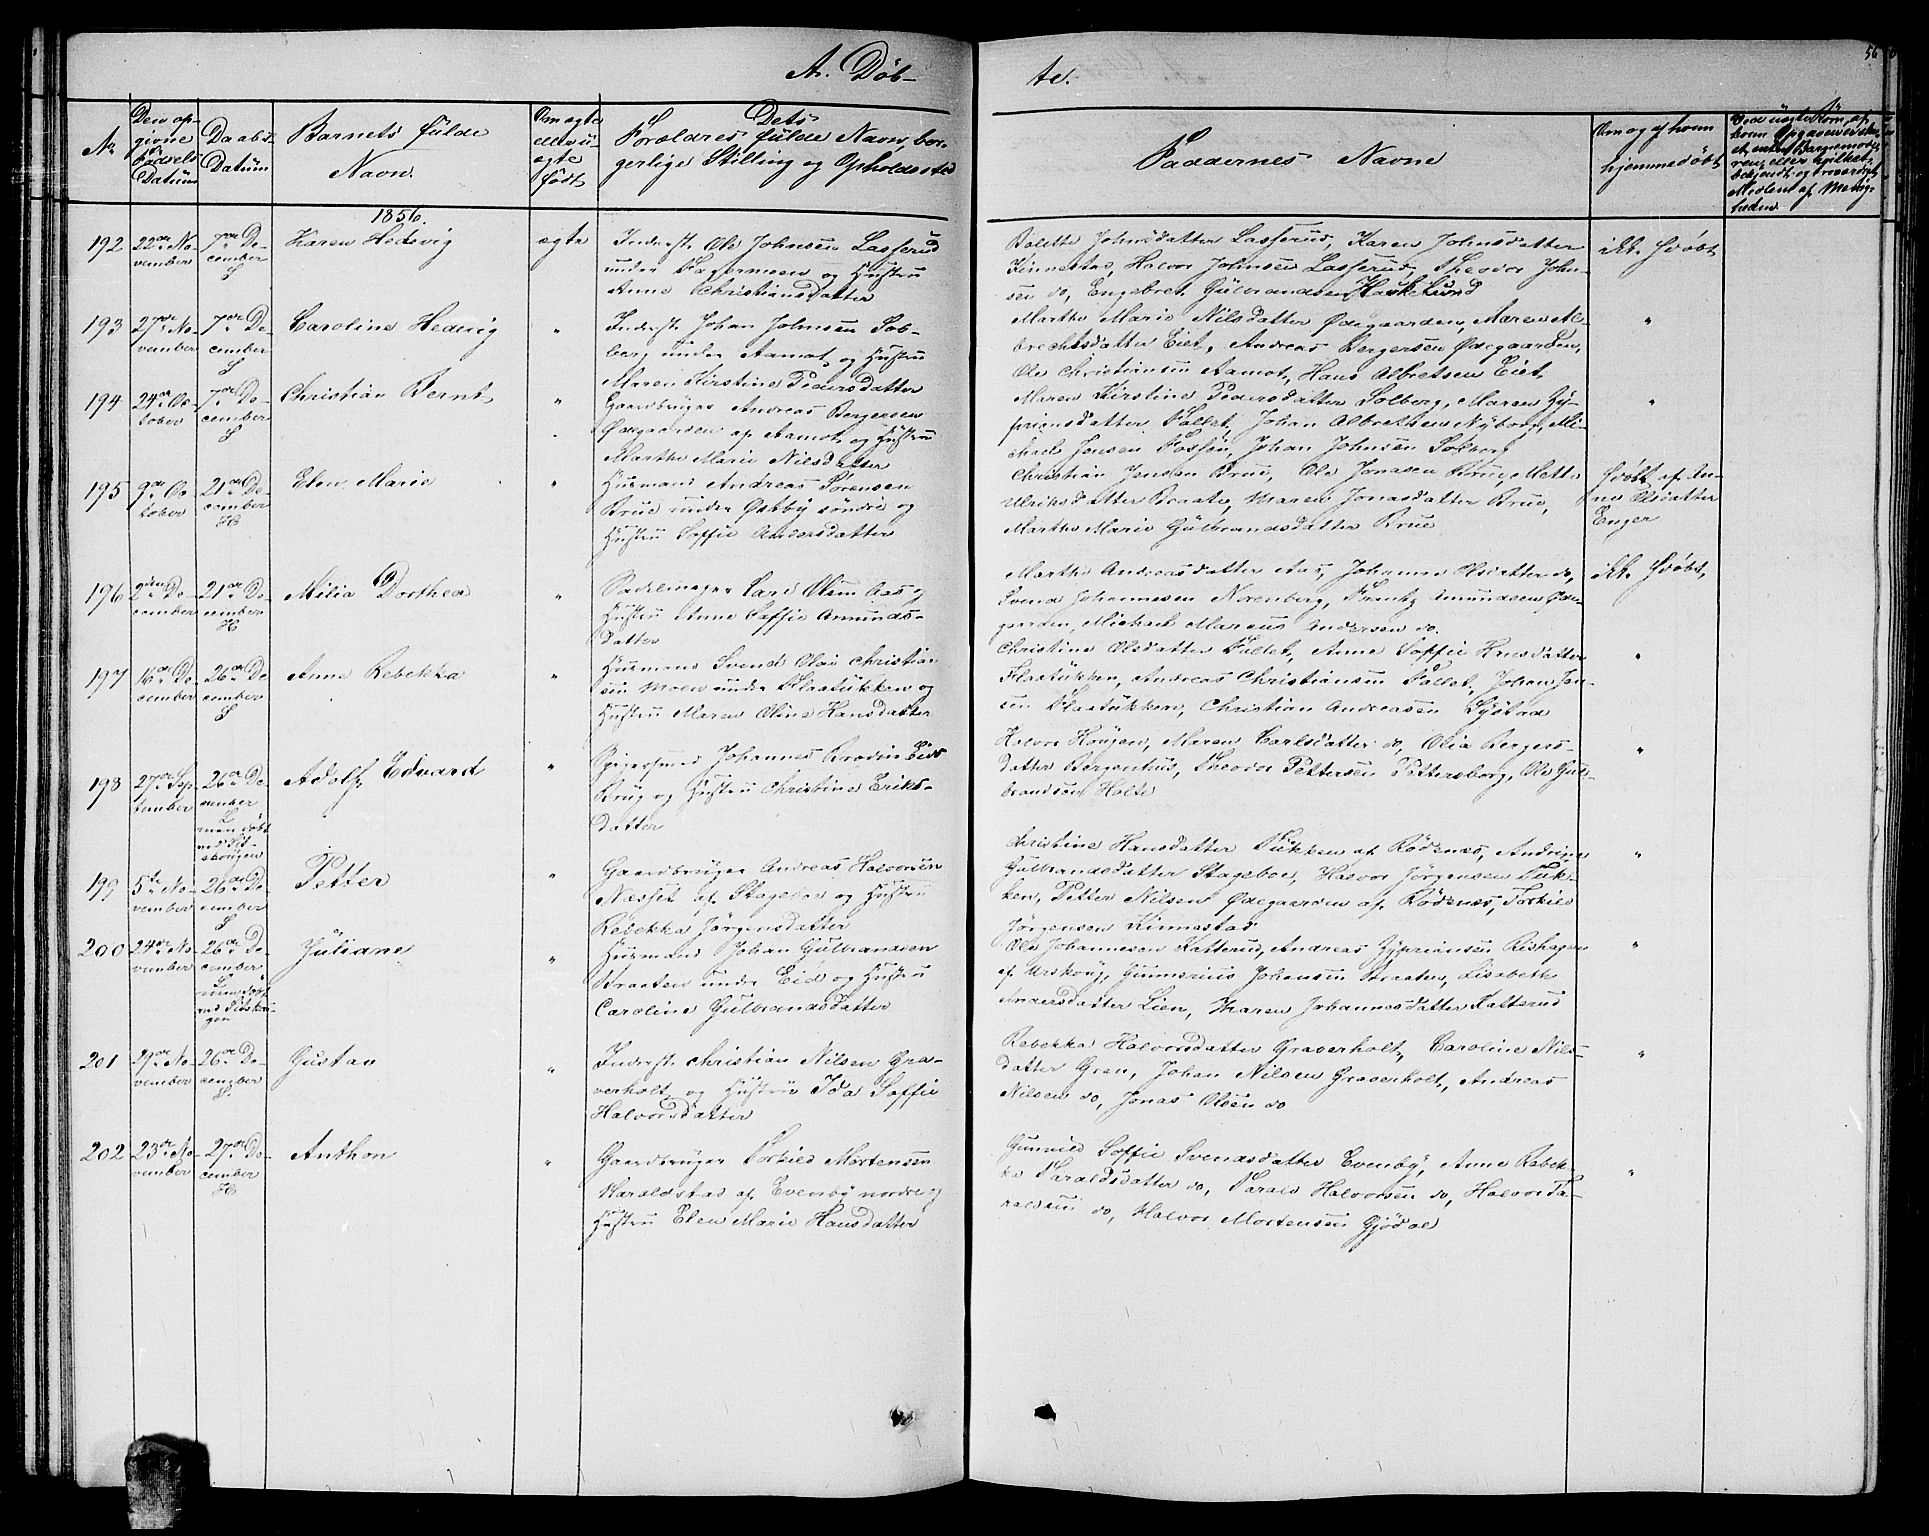 A. Döb-
te.
56
No
Den op-
givne
Födsels
Datüm
Daabs-
Datüm
Barnets fülde
Navn.
Om ægte
eller ü-
ægte
födt
Dets
Forældres fülde Navn, bor-
gerlige Stilling og Opholdssted
Faddernes Navne
Om og af hvem
hjemmedöbt
1856.
192 22de No-
vember
7de De-
cember
S
Karen Hedevig
ægte
Inderst Ole Johnsen Lasserud
under Fagermoen og Hustru
Anne Christiansdatter
Bolette Johnsdatter Lasserud, Karen Johnsdatter
Kinnestad, Halvor Johnsen Lasserud, Theodor John-
sen do, Engebret Gülbrandsen Haukelund
ikke hdöbt
193 27de No-
vember
7de De-
cember
S
Caroline Hedevig
"
Inderst Johan Johnsen Sol-
berg under Aamot og Hustru
Maren Kirstine Pedersdatter
Marthe Marie Nilsdatter Ødegaarden, Maren Al-
brechtsdatter Eiet, Andreas Bergersen Ødegaarden,
Ole Christiansen Aamot, Hans Albretsen Eiet
"
194 24de Oc-
tober
7de De-
cember
S
Christian Bernt
"
Gaardbrüger Andreas Bergersen
Ødegaarden af Aamot og Hustru
Marthe Marie Nilsdatter
Maren Kirstine Pedersdatter Solberg, Maren Zy-
priansdatter Fallet, Johan Albrethsen Nyborg, Mi-
chael Jensen Fossen, Johan Johnsen Solberg
"
195 9de Oc-
tober
21de De-
cember
H
Elen Marie
"
Husmand Andreas Sørensen
Brue under Østby söndre og
Hustru Soffie Andersdatter
Christian Jensen Brue, Ole Jonasen Brue, Mette
Ulriksdatter Braate, Maren Jonasdatter Brue,
Marthe Marie Gülbrandsdatter Brue
hdöbt af An-
ne Olsdatter
Enger
196 2den De-
cember
21de De-
cember
H
Milia Dorthea
"
Sadelmager Lars Olsen Aas og
Hustru Anne Soffie Amunds-
datter
Marthe Andreasdatter Aas, Johanne Olsdatter do,
Svend Johannesen Norenberg, Frantz Amundsen Øde-
gaarden, Michael Marcus Andersen do.
ikke hdöbt,
197 16de De-
cember
26de De-
cember
S
Anne Rebekka
"
Husmand Svend Olai Christian-
sen Moen under Flaatükken og
Hustru Maren Oline Hansdatter
Christine Olsdatter Fallet, Anne Soffie Hansdatter
Flaatükken, Andreas Christiansen Fallet, Johan Jen-
sen Flaatükken, Christian Andreassen Systad
"
198 27de Sep-
tember
26de De-
cember
men döbt
ved Set-
skougen
Adolf Edvard
"
Spigersmed Johannes Brodin Eids
Brug og Hustru Christine Eriks-
datter
Halvor Hougen, Maren Carlsdatter do, Olia Bergers-
datter Bergenhus, Theodor Pettersen Pettersborg, Ole Gul-
brandsen Holte
"
199 5te No-
vember
26de De-
cember
S
Petter
"
Gaardbrüger Andreas Halvorsen
Næsset af Stageboe og Hustru
Rebekka Jörgensdatter
Christine Hansdatter Tükken af Rödenæs, Andrine
Gülbrandsdatter Stageboe, Halvor Jörgensen Tük-
ken, Petter Nilsen Ødegaarden af Rödenæs, Torkild
Jörgensen Kinnestad
"
200 24de No-
vember
26de De-
cember
men döbt
ved Setskou-
gen
Jüliane
"
Husmand Johan Gülbrandsen
Braaten under Eid og Hustru
Caroline Gülbrandsdatter
Ole Johannesen Katterud, Andreas Zyprianssen Rishagen
af Urskoug, Gunnerius Johansen Braaten, Lisabeth
Andersdatter Lien, Maren Johannesdatter Katterud
"
201 29de No-
vember
26de De-
cember
S.
Gustav
"
Inderst Christian Nilsen Gra-
verholt og Hustrü Ida Soffie
Halvorsdatter
Rebekka Halvorsdatter Graverholt, Caroline Nils-
datter Gren, Johan Nilsen Graverholt, Andreas
Nilsen do, Jonas Olsen do
"
202 23de No-
vember
27de De-
cember
H
Anthon
"
Gaardbrüger Torkild Mortensen
Haraldstad af Evenby nordre og
Hustru Elen Marie Hansdatter
Gunnild Soffie Svendsdatter Evenby, Anne Rebek-
ka Taraldsdatter do, Tarald Halvorsen do, Halvor Ta-
raldsen do, Halvor Mortensen Gjödal
"